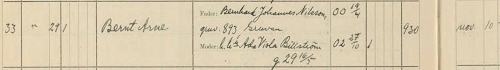 Fader: Bernhard Johannes Nilsson, 00 19/4
33 " 29 1 Bernt Arne gruv. 893 Gruvan 930 nov. 10
Moder: Ada Viola Billström 02 27/10 1
g 29